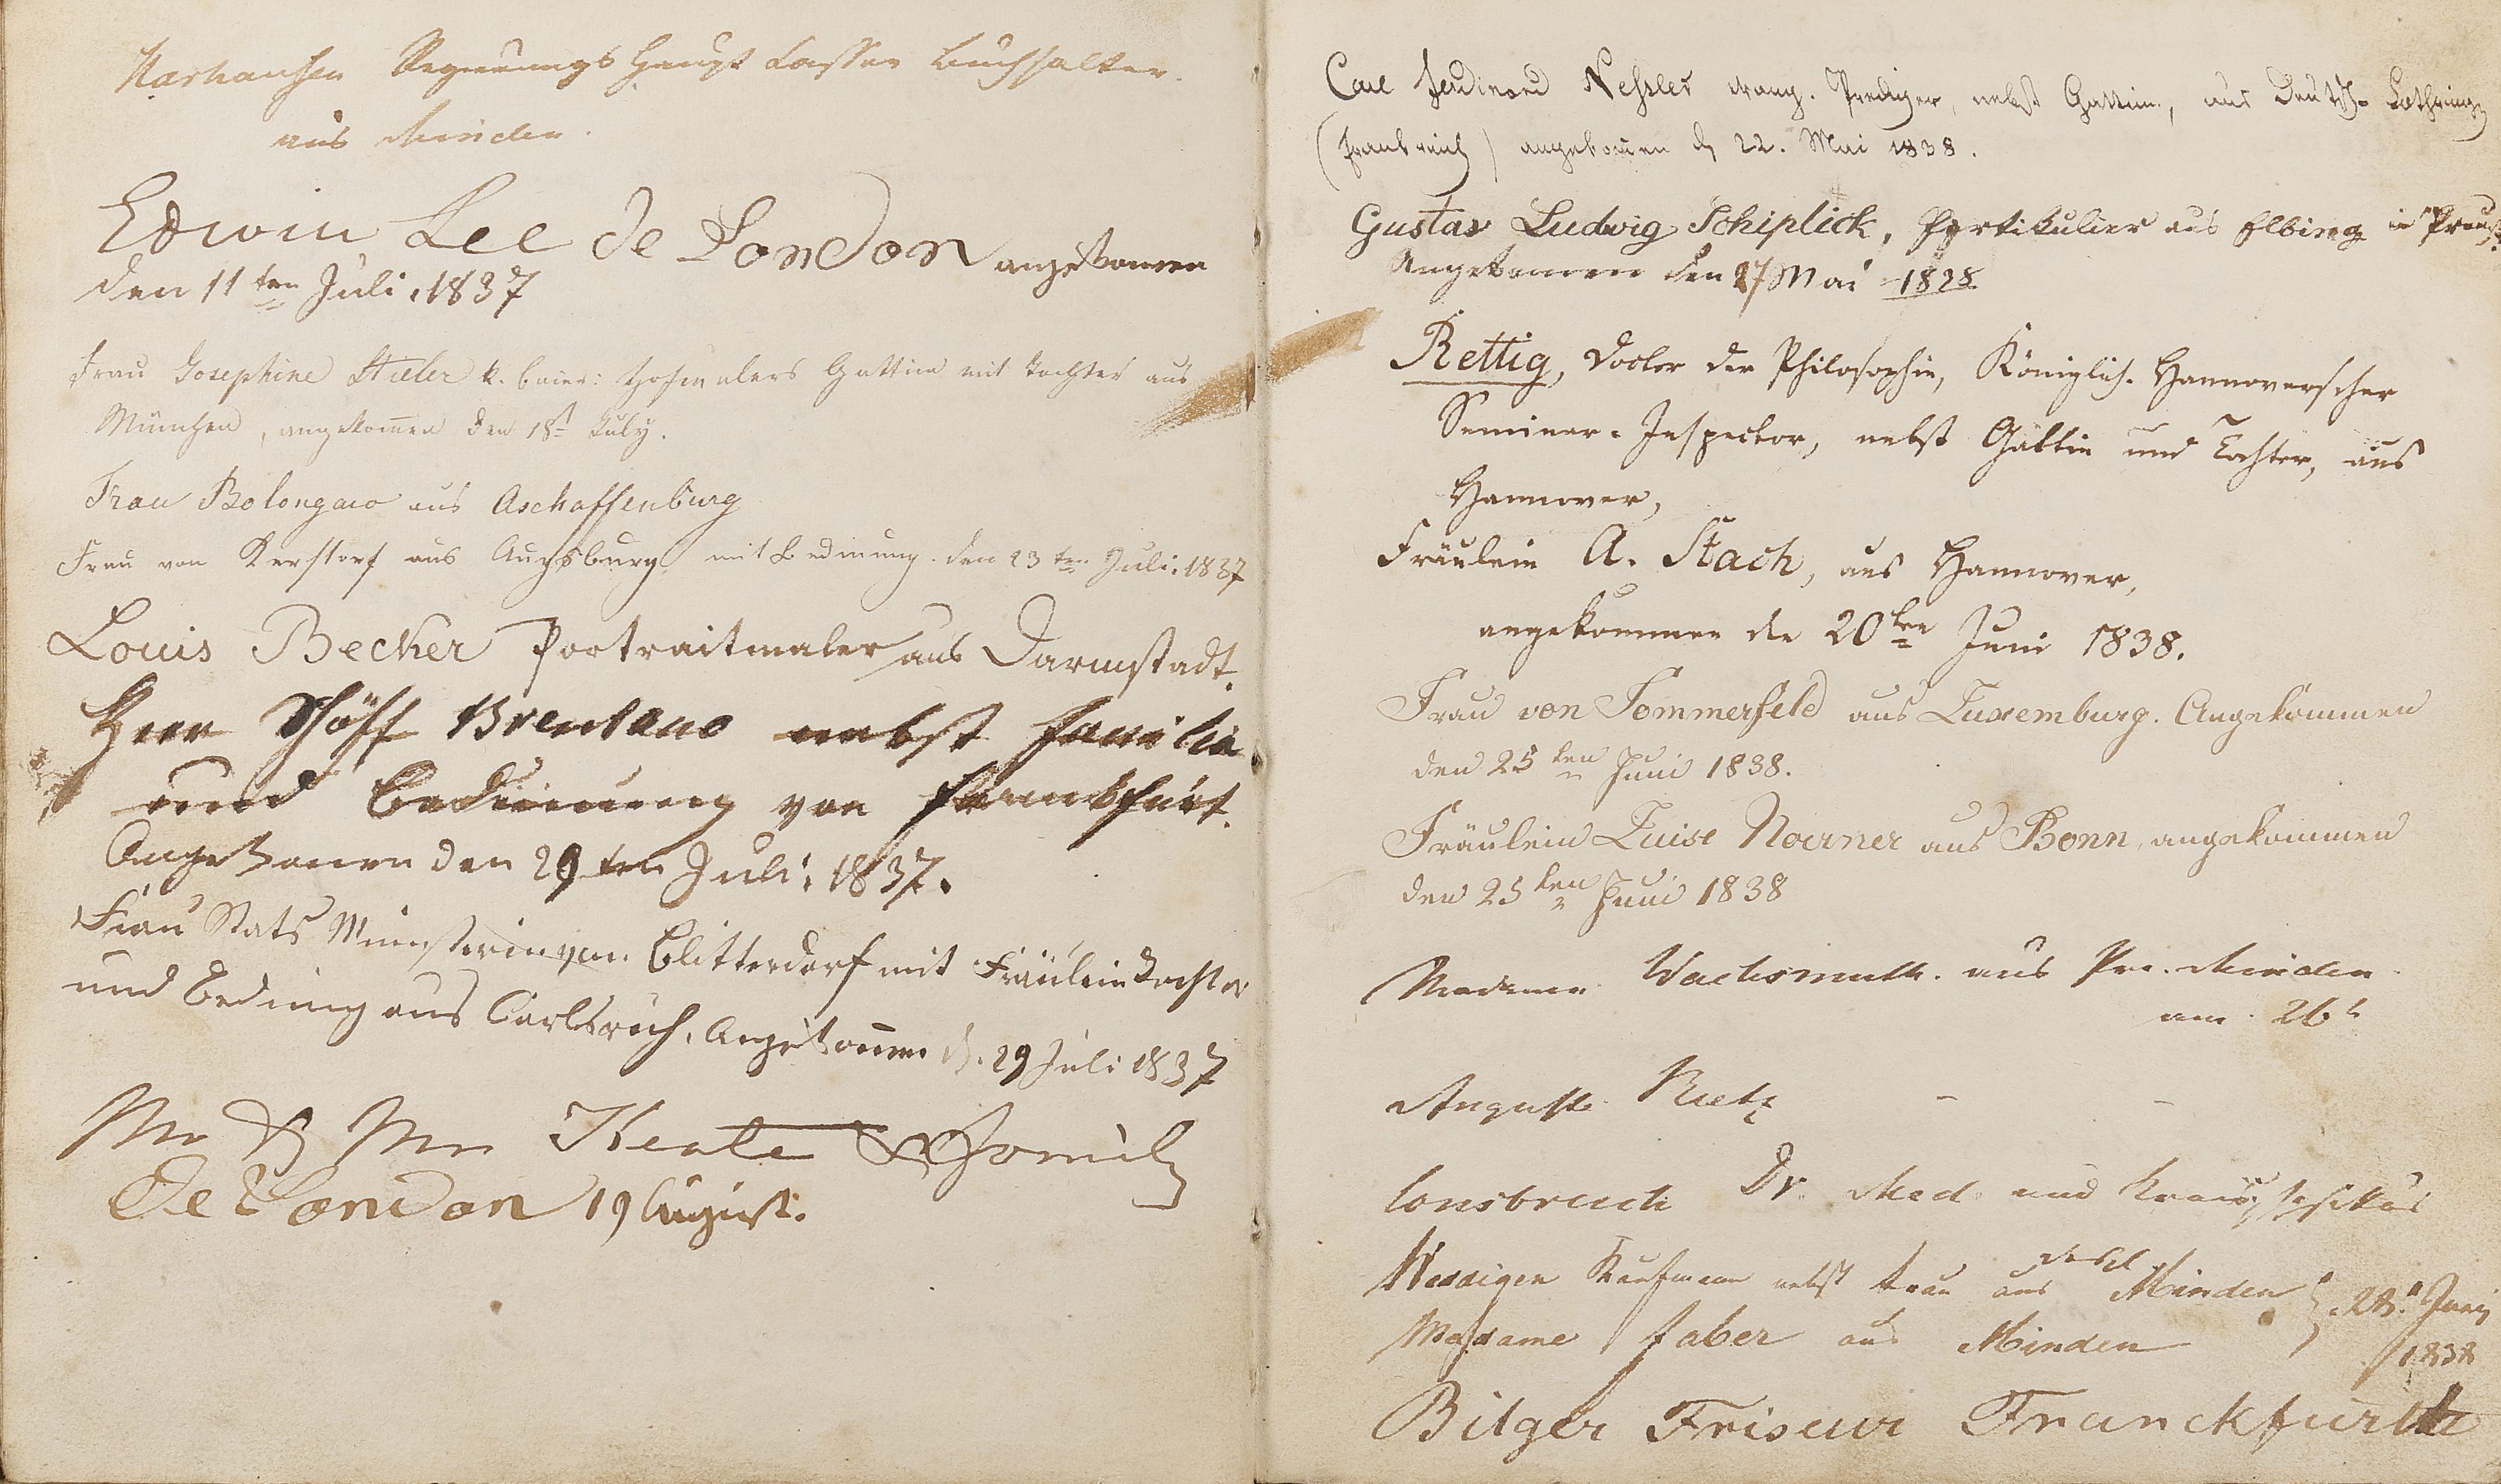 Harhausen Regierungs Haupt Cassen Buchhalter.
aus Minden.
Edwin Lee de London angekomen
den 11ten Juli. 1837
Frau Josephine Stieler k. baier: Hofmalers Gattin mit Tochter aus
München, angekom̄en den 18t July.
Frau Bolongaro aus Aschaffenburg
Frau von Kerstorf aus Augsburg mit Bedinung. den 23ten Juli. 1837
Louis Becker Portraitmaler aus Darmstadt.
Herr Schöff Brentano nebst Familie
und Bedienung von Frankfurt.
Angekomen den 29ten Juli. 1837.
Frau Stats Ministerin von Blitterdorf mit Fräulein Tochter
und Bedinug aus Carlsruh. Angekom̄en d. 29 Juli 1837
Mr & Mrs Keate & Family
De London 19 August.
Carl Ferdinand Neßler evang. Prediger, nebst Gattin, aus Deutsch-Lothringen
(Frankreich) angekom̄en d. 22. Mai 1838.
Gustav Ludwig Schiplick, Partikulier aus Elbing in Preuß.
Angekommen den 27 Mai 1838.
Rettig, Doctor der Philosophie, Königlich-Hannoverscher
Seminar-Inspector, nebst Gattin und Tochter, aus
Hannover,
Fräulein A. Stach, aus Hannover,
angekommen den 20ten Juni 1838.
Frau von Sommerfeld aus Luxemburg. Angekommen
den 25ten Juni 1838.
Fräulein Luise Noerner aus Bonn, angekommen
den 25ten Juni 1838
Madame Wachsmuth. aus Pr. Minden.
am 26t
Auguste Rietz - -
Consbruch Dr. Med. und Kreisphysikus
Weddigen Kaufmann nebst Frau aus Minden 28t Juni
Madame Faber aus Minden 1838
Bilger Friseur Franckfurth